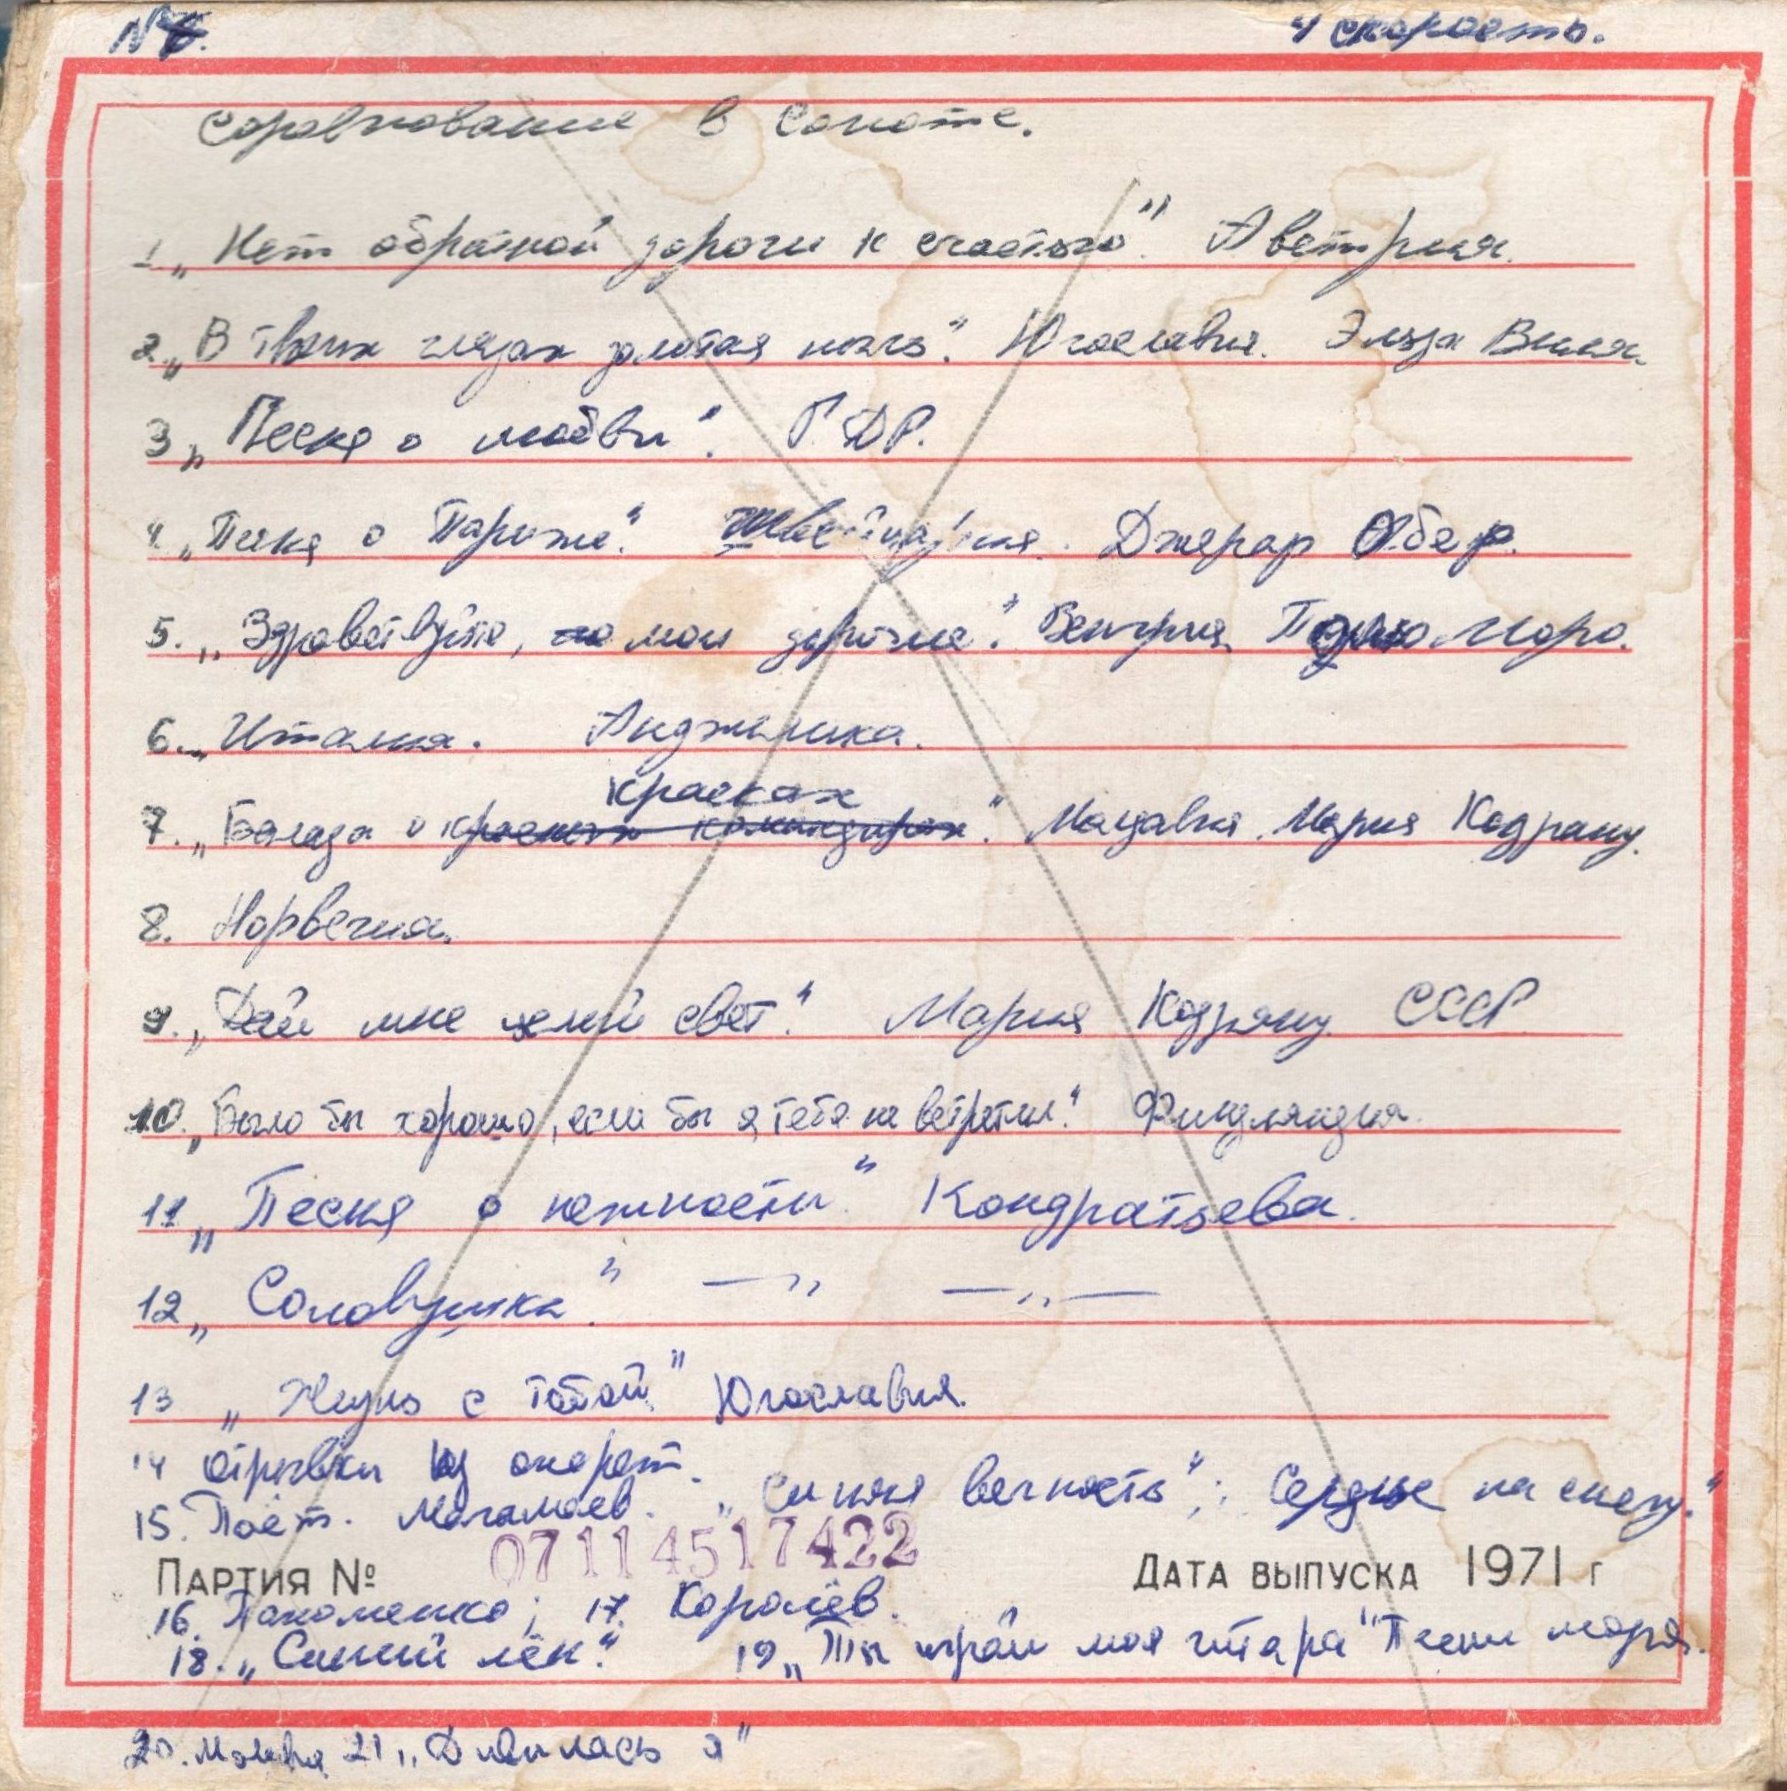 №
4 скорость.
Соревнование в Сопоте.
1 „Нет обратной дороги к счастью". Австрия.
2 „В твоих глазах золотая ночь". Югославия. Эльза
3 „Песня о любви". Г.ДР.
4. „Песня о Париже". Швейцария. Джерар Обер.
5. „Здравствуйте, мои дорогие". Венгрия, Моро.
6. „Италия. Анджелика.
красках
7. „Балада о красных командирах". Молдавия. Мария Кодряну.
8. Норвегия.
9. „Дай мне целый свет". Мария Кодряну. СССР
10. „Было бы хорошо, если бы я тебя не встретил". Финляндия.
11 „Песня о нежности". Кондратьева.
12 „Соловушка". —„ —„—
13 „Жизнь с тобой" Югославия.
14 отрывки из оперет.
15. Поёт. Магамаев. „Синяя вечность"; Сердце на снегу."
07114517422
Партия № Дата выпуска 1971 г
16. Пахоменко; 17. Королёв.
18. „Синий лён." 19 „Ты играй моя гитара" Песни моря.
20. 21 „Дивилась я"